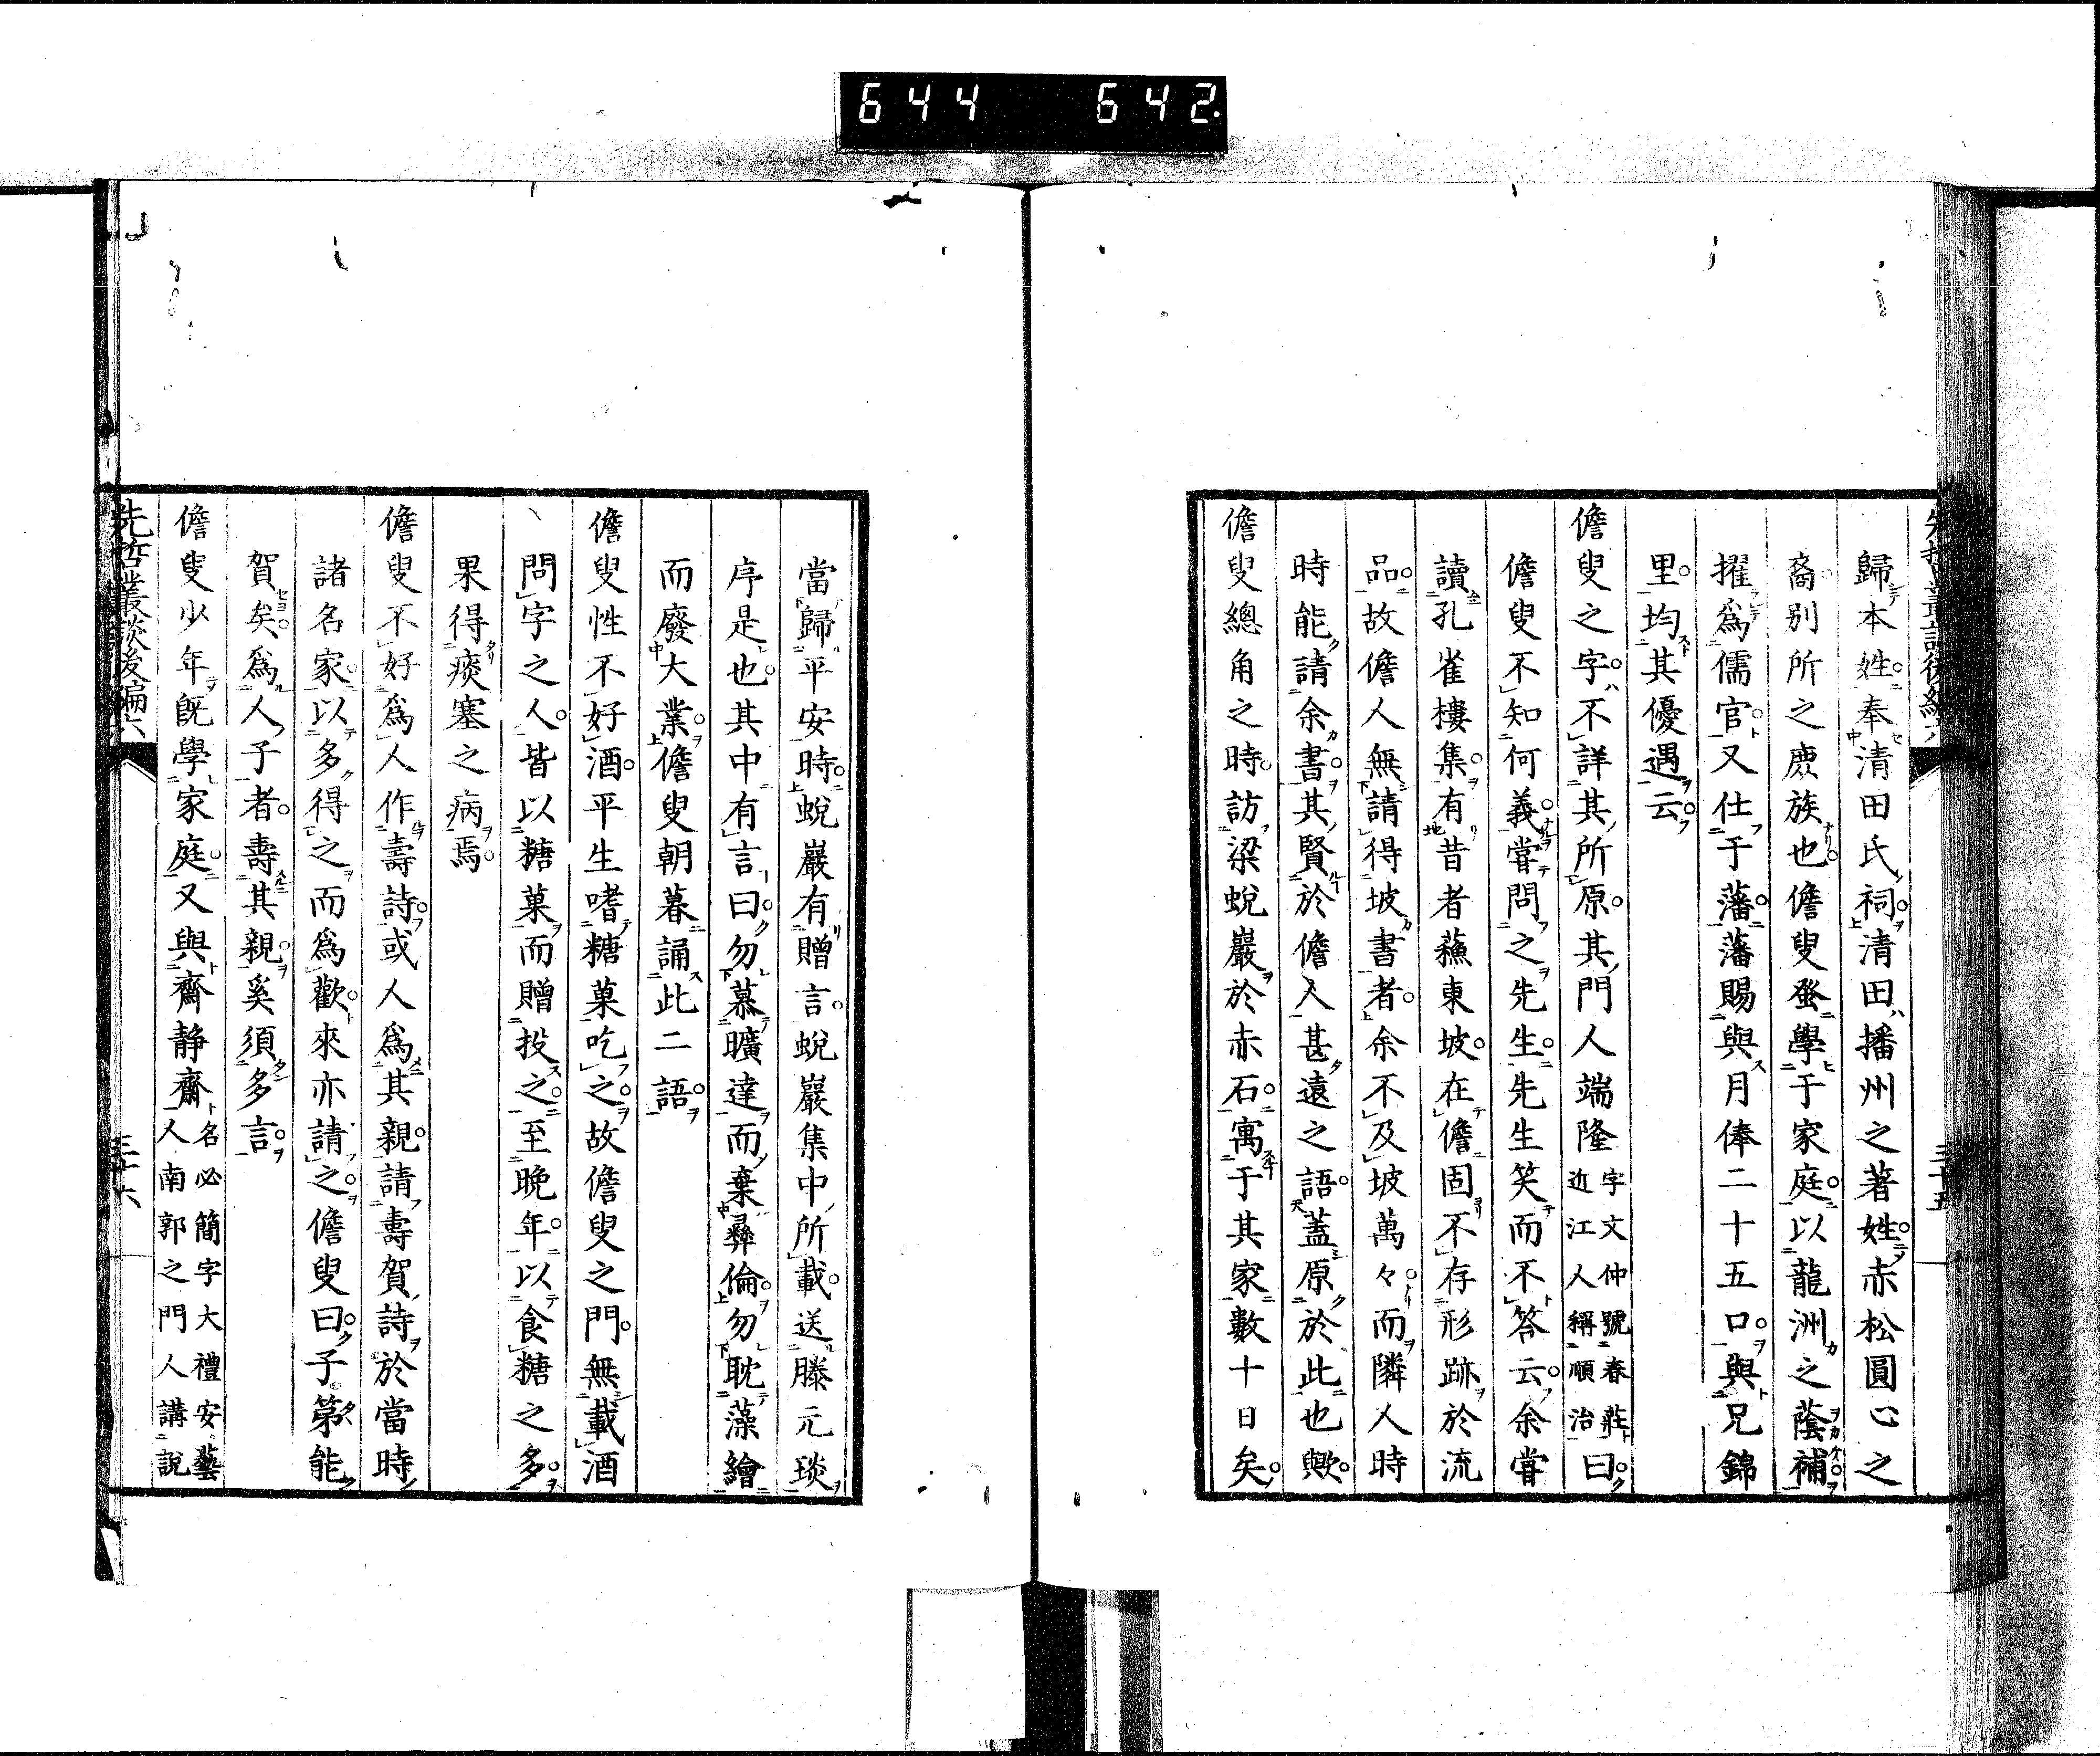 644 642
歸本姓奉清田氏祠清田播州之著姓赤松圓心之
裔別所之庶族也儋叟蚤學于家庭以龍洲之蔭補
擢爲儒官又仕于藩藩賜與月俸二十五口與兄錦
里均其優遇云
儋叟之字不詳其所原其門人端隆字文仲號春莊近江人稱順治曰
儋叟不知何義嘗問之先生先生笑而不答云余嘗
讀孔雀樓集有昔者蘓東坡在儋固不存形跡於流
品故儋人無請得坡書者余不及坡萬々而隣人時
時能請余書其賢於儋人甚遠之語蓋原於此也歟
儋叟總角之時訪梁蛻巖於赤石寓于其家數十日矣
當歸平安時蛻巖有贈言蛻巖集中所載送滕元琰
序是也其中有言曰勿慕曠達而棄彝倫勿耽藻繪
而廢大業儋叟朝暮誦此二語
儋叟性不好酒平生嗜糖菓吃之故儋叟之門無載酒
問字之人皆以糖菓而贈投之至晚年以食糖之多
果得痰塞之病焉
儋叟不好爲人作壽詩或人爲其親請壽賀詩於當時
諸名家以多得之而爲歡來亦請之儋叟曰子第能
賀矣爲人子者壽其親奚須多言
儋叟少年既學家庭又與齋静齋名必簡字大禮安藝人南郭之門人講說
先哲叢談後編六
三十六